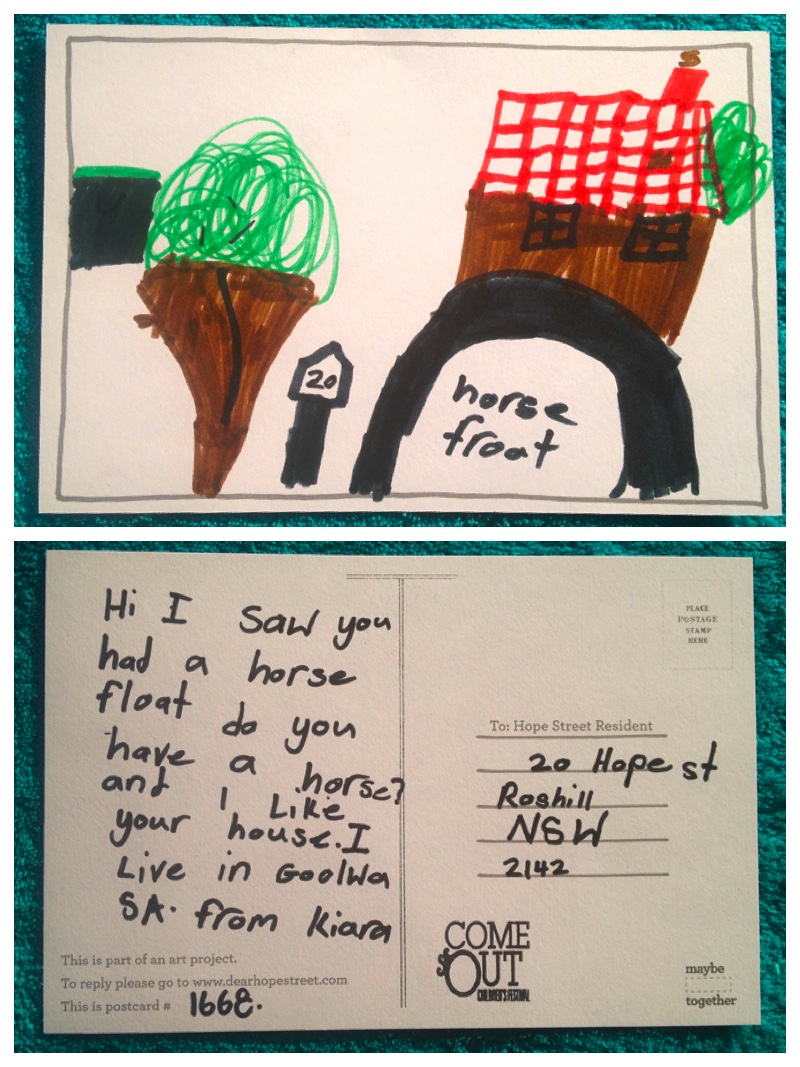 20
horse
froat
Hi I saw you
had a horse
float do you
have a horse?
and I Like
your house. I
Live in Goolwa
SA. from Kiara
This is part of an art project.
To reply please go to www.dearhopestreet.com
This is postcard # 1668.
PLACE
POSTAGE
STAMP
HERE
To: Hope Street Resident
20 Hope st
Roshill
NSW
2142
COME
OUT
CHILDREN'S FESTIVAL
maybe
together